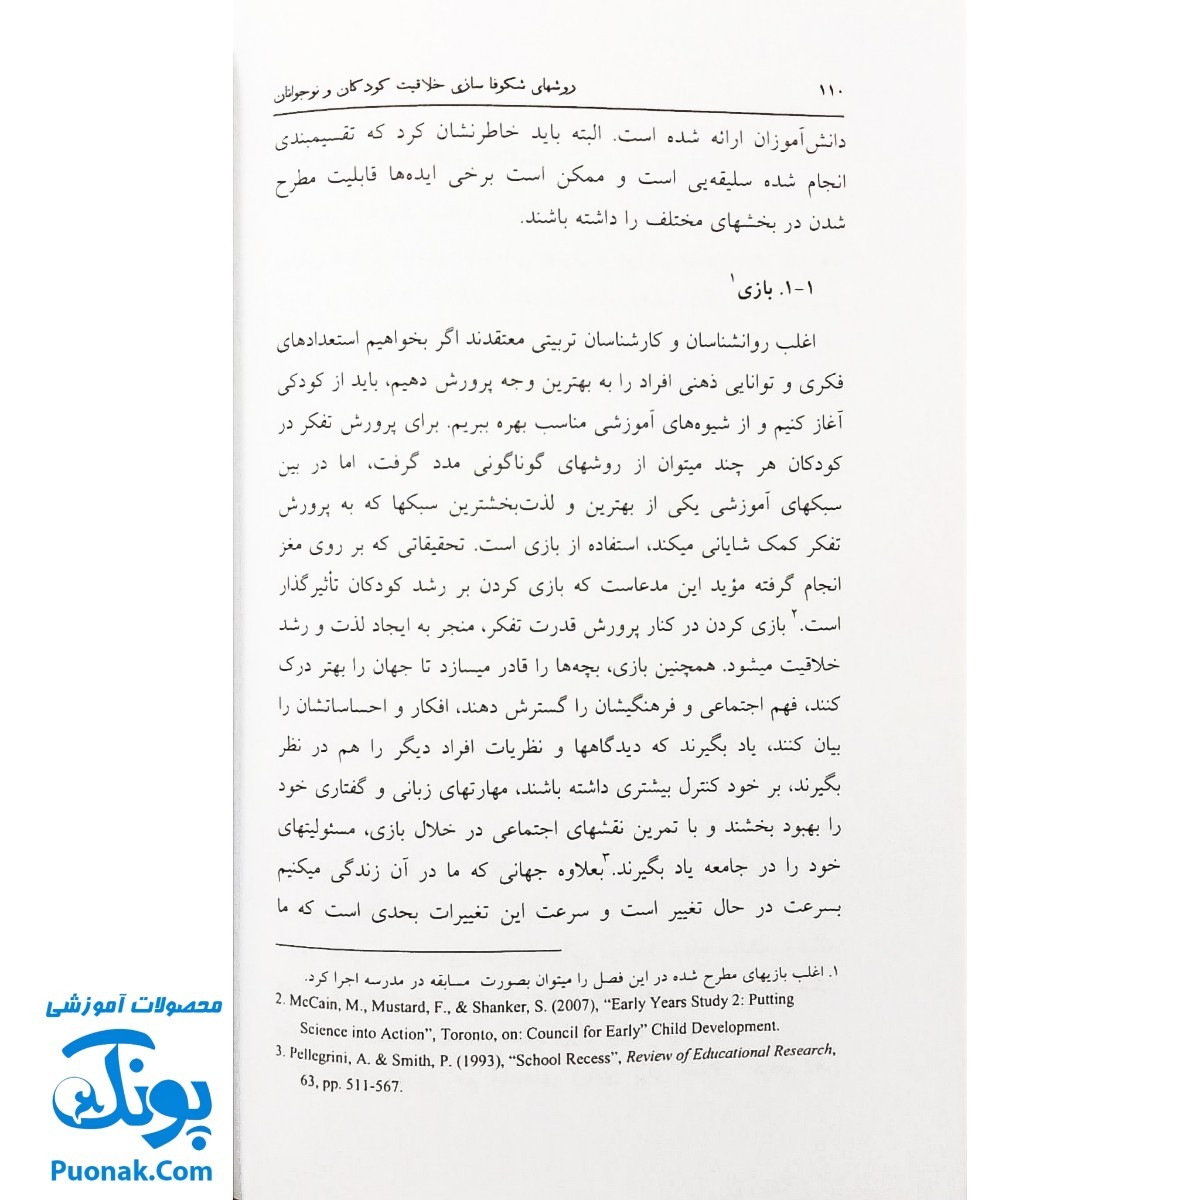 ۱۱۰ روشهای شکوفا سازی خلاقیت کودکان و نوجوانان
دانش‌آموزان ارائه شده است. البته باید خاطرنشان کرد که تقسیمبندی
انجام شده سلیقه‌یی است و ممکن است برخی ایده‌ها قابلیت مطرح
شدن در بخشهای مختلف را داشته باشند.
۱-۱. بازی۱
اغلب روانشناسان و کارشناسان تربیتی معتقدند اگر بخواهیم استعدادهای
فکری و توانایی ذهنی افراد را به بهترین وجه پرورش دهیم، باید از کودکی
آغاز کنیم و از شیوه‌های آموزشی مناسب بهره ببریم. برای پرورش تفکر در
کودکان هر چند میتوان از روشهای گوناگونی مدد گرفت، اما در بین
سبکهای آموزشی یکی از بهترین و لذت‌بخشترین سبکها که به پرورش
تفکر کمک شایانی میکند، استفاده از بازی است. تحقیقاتی که بر روی مغز
انجام گرفته مؤید این مدعاست که بازی کردن بر رشد کودکان تأثیرگذار
است.۲ بازی کردن در کنار پرورش قدرت تفکر، منجر به ایجاد لذت و رشد
خلاقیت میشود. همچنین بازی، بچه‌ها را قادر میسازد تا جهان را بهتر درک
کنند، فهم اجتماعی و فرهنگیشان را گسترش دهند، افکار و احساساتشان را
بیان کنند، یاد بگیرند که دیدگاهها و نظریات افراد دیگر را هم در نظر
بگیرند، بر خود کنترل بیشتری داشته باشند، مهارتهای زبانی و گفتاری خود
را بهبود بخشند و با تمرین نقشهای اجتماعی در خلال بازی، مسئولیتهای
خود را در جامعه یاد بگیرند.۳ بعلاوه جهانی که ما در آن زندگی میکنیم
بسرعت در حال تغییر است و سرعت این تغییرات بحدی است که ما
۱. اغلب بازیهای مطرح شده در این فصل را میتوان بصورت مسابقه در مدرسه اجرا کرد.
2. McCain, M., Mustard, F., & Shanker, S. (2007), “Early Years Study 2: Putting
Science into Action”, Toronto, on: Council for Early” Child Development.
3. Pellegrini, A. & Smith, P. (1993), “School Recess”, Review of Educational Research,
63, pp. 511-567.
محصولات آموزشی
پونک
Puonak.Com